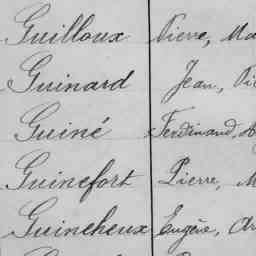 Guilloux Pierre, Ma
Guinard Jean, Vi
Guiné Ferdinand, A
Guinefort Pierre, M
Guineheux Eugène, Ar